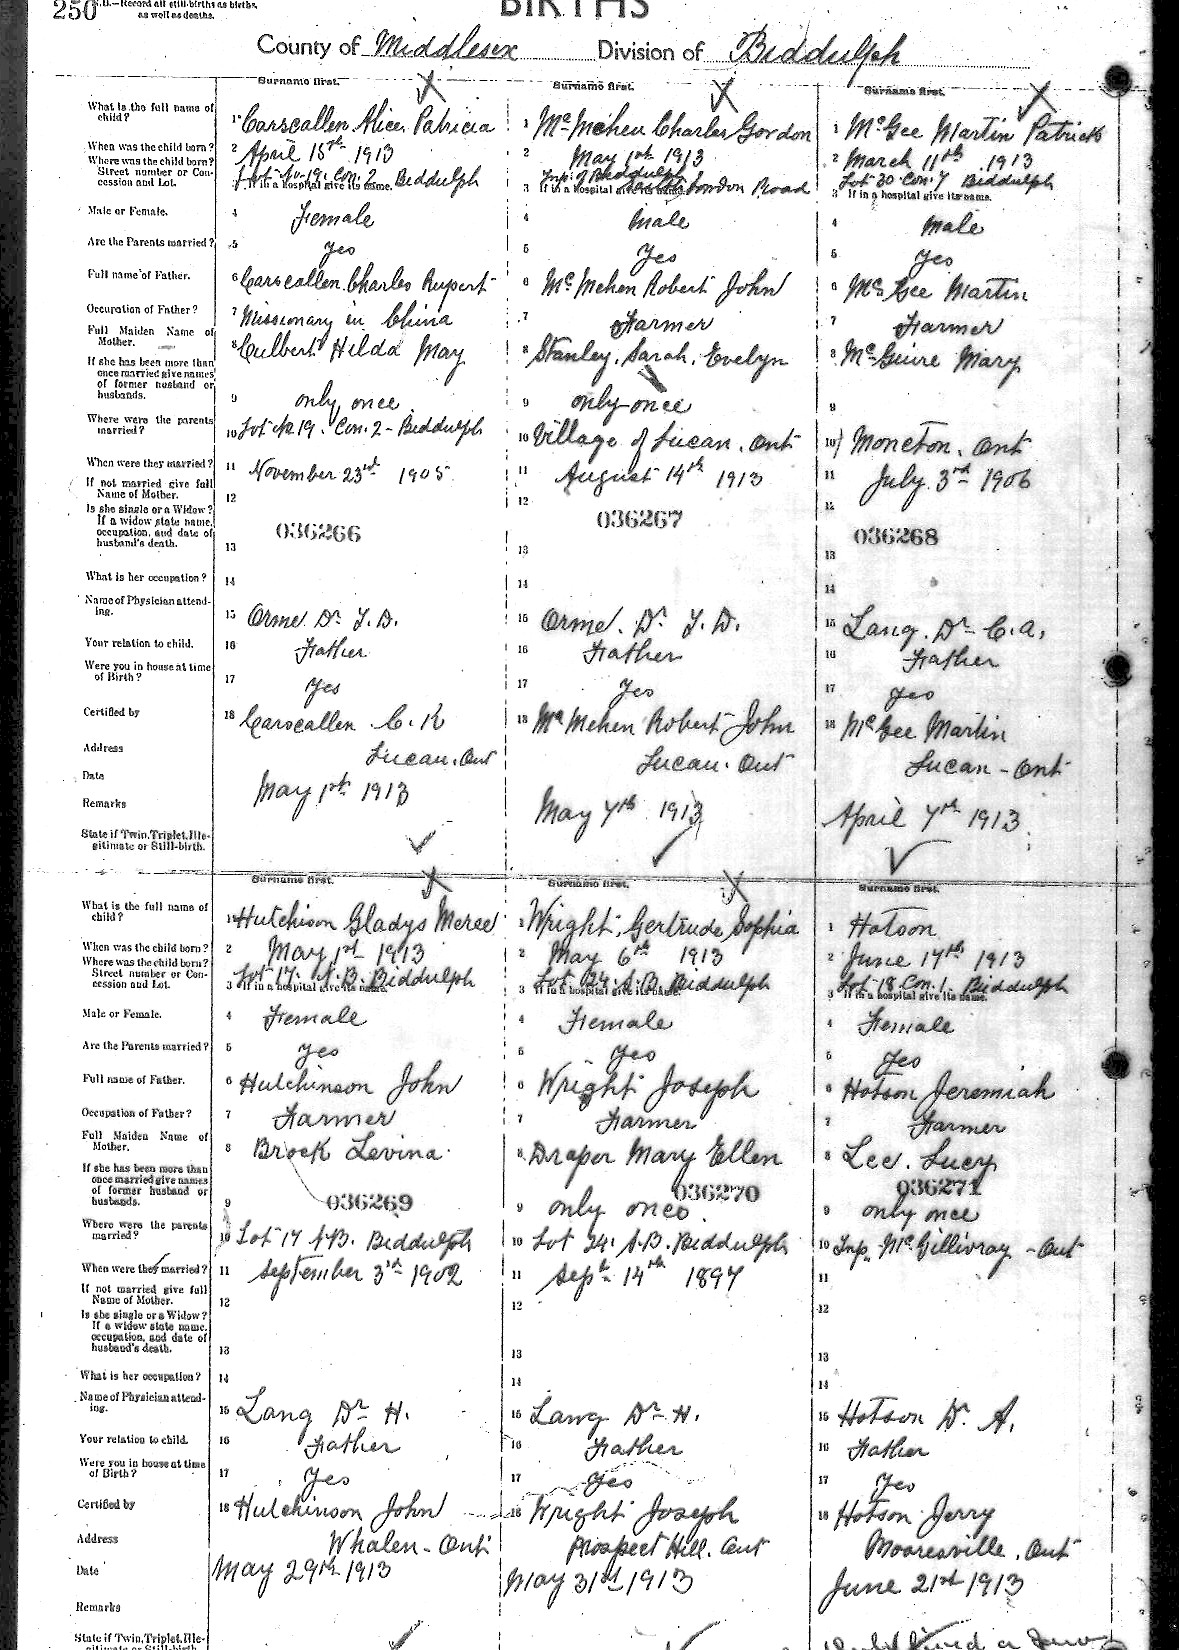 250
N.B.—Record all still-births as births,
as well as deaths.
BIRTHS
County of Middlesex Division of Biddulph
Surname first. Surname first. Surname first.
What is the full name of
child?
1 Carscallen Alice Patricia 1 McMehen Charles Gordon 1 McGee Martin Patrick
When was the child born? 2 April 18th 1913 2 May 1st 1913 2 March 11th 1913
Where was the child born?
Street number or Con-
cession and Lot.
Lot No 19. Con. 2. Biddulph Tnp. of Biddulph London Road Lot 30 Con. 7 Biddulph
3 If in a hospital give its name. 3 If in a hospital give its name. 3 If in a hospital give its name.
Male or Female. 4 Female 4 Male 4 Male
Are the Parents married? 5 Yes 5 Yes 5 Yes
Full name of Father. 6 Carscallen Charles Rupert 6 McMehen Robert John 6 McGee Martin
Occupation of Father? 7 Missionary in China 7 Farmer 7 Farmer
Full Maiden Name of
Mother.
8 Culbert Hilda May 8 Stanley, Sarah, Evelyn 8 McGuire Mary
If she has been more than
once married give names
of former husband or
husbands.
9 only once 9 only once 9
Where were the parents
married?
10 Lot No 19. Con. 2 - Biddulph 10 Village of Lucan, Ont 10 Moncton, Ont
When were they married? 11 November 23rd 1905 11 August 14th 1913 11 July 3rd 1906
If not married give full
Name of Mother.
12 12 12
Is she single or a Widow?
If a widow state name,
occupation, and date of
husband's death.
036266 036267 036268
13 13 13
What is her occupation? 14 14 14
Name of Physician attend-
ing.
15 Orme. Dr. T. D. 15 Orme. Dr. T. D. 15 Lang. Dr. C. A.
Your relation to child. 16 Father 16 Father 16 Father
Were you in house at time
of Birth?
17 Yes 17 Yes 17 Yes
Certified by 18 Carscallen C. R 18 McMehen Robert John 18 McGee Martin
Address Lucan, Ont Lucan. Ont Lucan - Ont
Date May 1st 1913 May 7th 1913 April 7th 1913
Remarks
State if Twin, Triplet, Ille-
gitimate or Still-birth.
Surname first. Surname first. Surname first.
What is the full name of
child?
1 Hutchison Gladys Merce 1 Wright, Gertrude Sophia 1 Hotson
When was the child born? 2 May 1st 1913 2 May 6th 1913 2 June 17th 1913
Where was the child born?
Street number or Con-
cession and Lot.
Lot 17. N.B. Biddulph Lot 24. S.B. Biddulph Lot 18 Con. 1. Biddulph
3 If in a hospital give its name. 3 If in a hospital give its name. 3 If in a hospital give its name.
Male or Female. 4 Female 4 Female 4 Female
Are the Parents married? 5 Yes 5 Yes 5 Yes
Full name of Father. 6 Hutchinson John 6 Wright Joseph 6 Hotson Jeremiah
Occupation of Father? 7 Farmer 7 Farmer 7 Farmer
Full Maiden Name of
Mother.
8 Brock Levina 8 Draper Mary Ellen 8 Lee. Lucy
If she has been more than
once married give names
of former husband or
husbands.
036269 036270 036271
9 9 only once 9 only once
Where were the parents
married?
10 Lot 17 N.B. Biddulph 10 Lot 24. S.B. Biddulph 10 Tnp. McGillivray - Ont
When were they married? 11 September 3rd 1902 11 Sept 14th 1897 11
If not married give full
Name of Mother.
12 12 12
Is she single or a Widow?
If a widow state name,
occupation, and date of
husband's death.
13 13 13
What is her occupation? 14 14 14
Name of Physician attend-
ing.
15 Lang Dr. H. 15 Lang Dr. H. 15 Hotson Dr. A.
Your relation to child. 16 Father 16 Father 16 Father
Were you in house at time
of Birth?
17 Yes 17 Yes 17 Yes
Certified by 18 Hutchinson John 18 Wright Joseph 18 Hotson Jerry
Address Whalen - Ont Prospect Hill. Ont Mooresville, Ont
Date May 29th 1913 May 31st 1913 June 21st 1913
Remarks
State if Twin, Triplet, Ille-
gitimate or Still-birth.